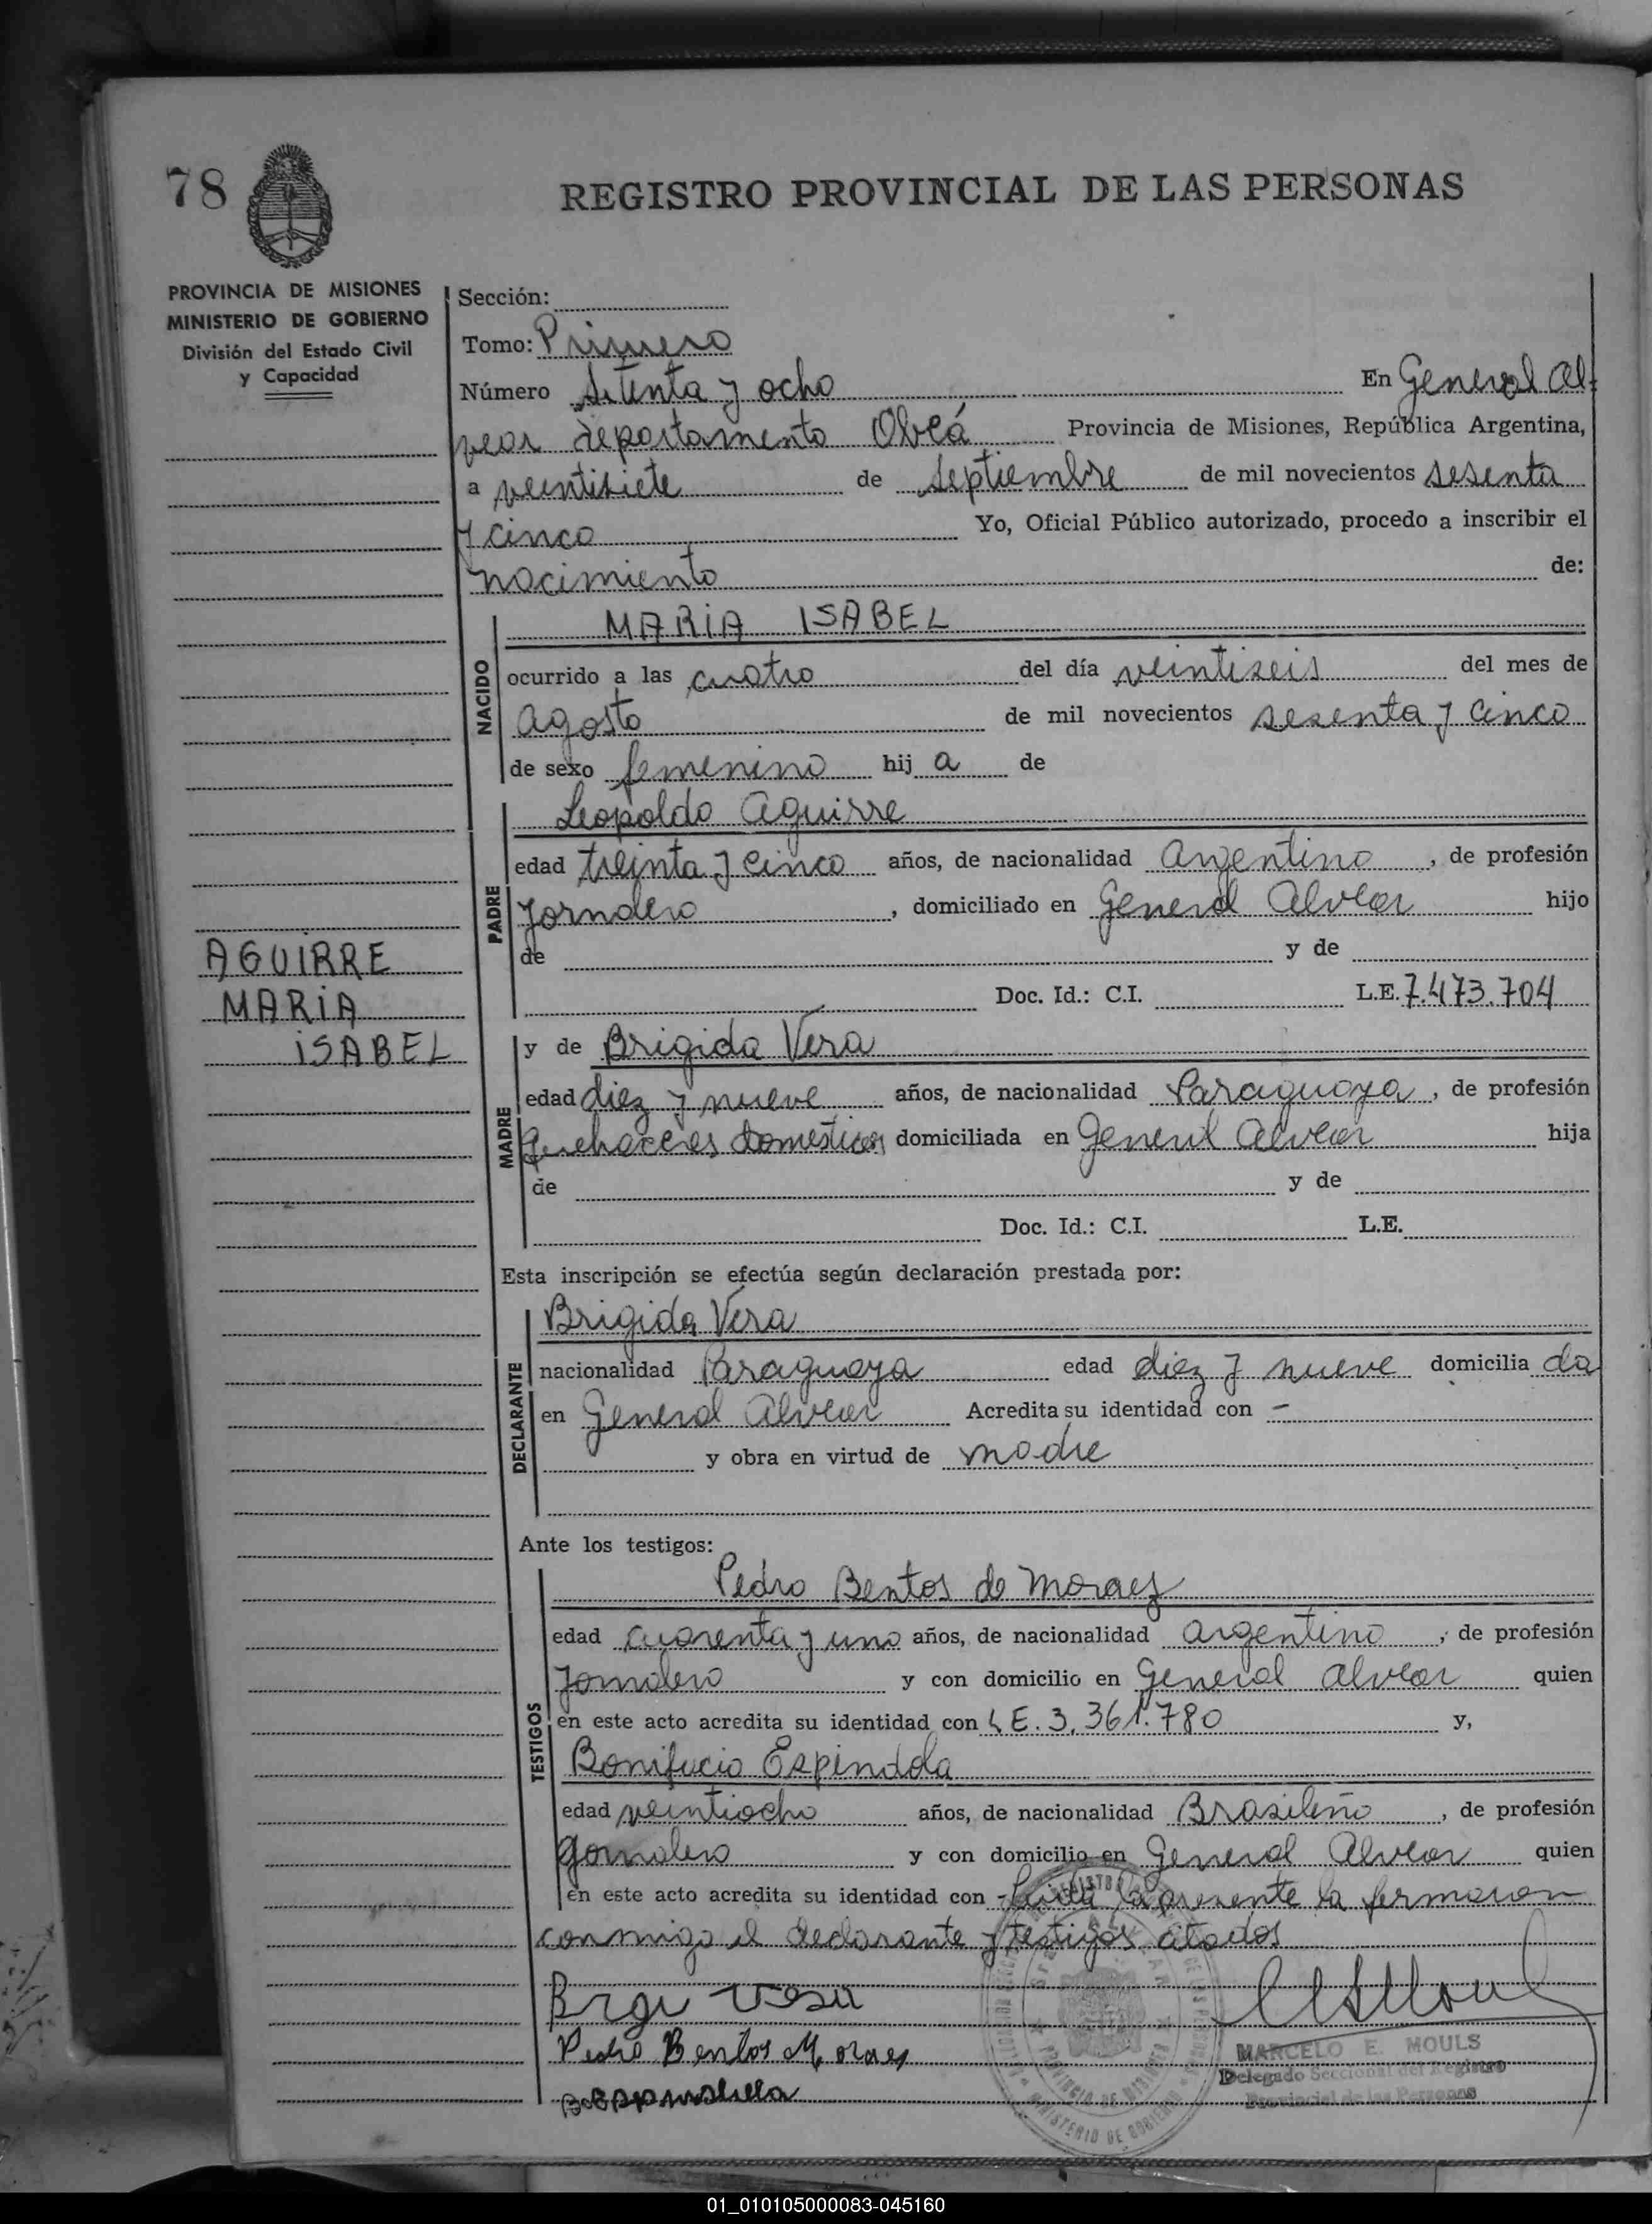 78
REGISTRO PROVINCIAL DE LAS PERSONAS
PROVINCIA DE MISIONES
MINISTERIO DE GOBIERNO
División del Estado Civil
y Capacidad
Sección:
Tomo: Primero
Número Setenta y ocho En General Al-
vear departamento Oberá Provincia de Misiones, República Argentina,
a veintisiete de septiembre de mil novecientos sesenta
y cinco Yo, Oficial Público autorizado, procedo a inscribir el
nacimiento de:
NACIDO
MARIA ISABEL
ocurrido a las cuatro del día veintiseis del mes de
Agosto de mil novecientos sesenta y cinco
de sexo femenino hij a de
PADRE
Leopoldo Aguirre
edad treinta y cinco años, de nacionalidad Argentino, de profesión
Jornalero, domiciliado en General Alvear hijo
de y de
Doc. Id.: C.I. L.E. 7.473.704
AGUIRRE
MARIA
ISABEL
MADRE
y de Brigida Vera
edad diez y nueve años, de nacionalidad Paraguaya, de profesión
Quehaceres domesticos domiciliada en General Alvear hija
de y de
Doc. Id.: C.I. L.E.
Esta inscripción se efectúa según declaración prestada por:
DECLARANTE
Brigida Vera
nacionalidad Paraguaya edad diez y nueve domicilia da
en General Alvear Acredita su identidad con -
y obra en virtud de madre
Ante los testigos:
TESTIGOS
Pedro Bentos de Moraez
edad cuarenta y uno años, de nacionalidad Argentino, de profesión
Jornalero y con domicilio en General Alvear quien
en este acto acredita su identidad con L E. 3.361.780 y,
Bonifacio Espindola
edad veintiocho años, de nacionalidad Brasileño, de profesión
Jornalero y con domicilio en General Alvear quien
en este acto acredita su identidad con - Leida la presente la fermaron
conmigo el declarante y testigos citados
Pedro Bentos Moraes
MARCELO E. MOULS
Delegado Seccional del Registro
Provincial de las Personas
01_010105000083-045160